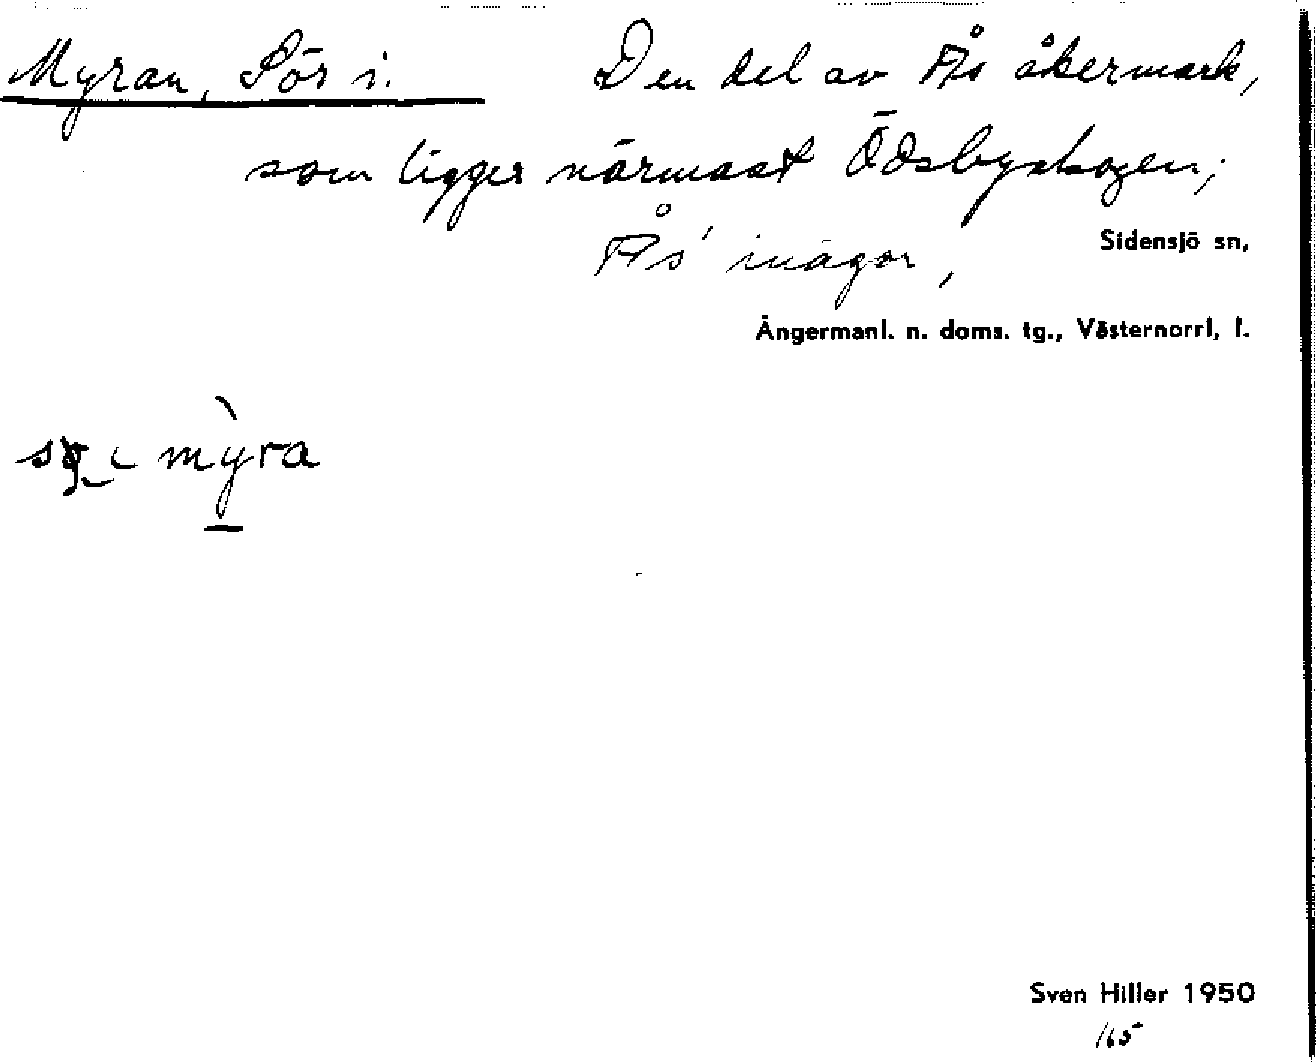 Myran, Sör i. Den del av Ås åkermark,
som ligger närmast Ödsbyskogen;
Ås' inägor,
Sidensjö sn,
Ångermanl. n. doms. tg., Västernorrl, l.
i myra
Sven Hiller 1950
165